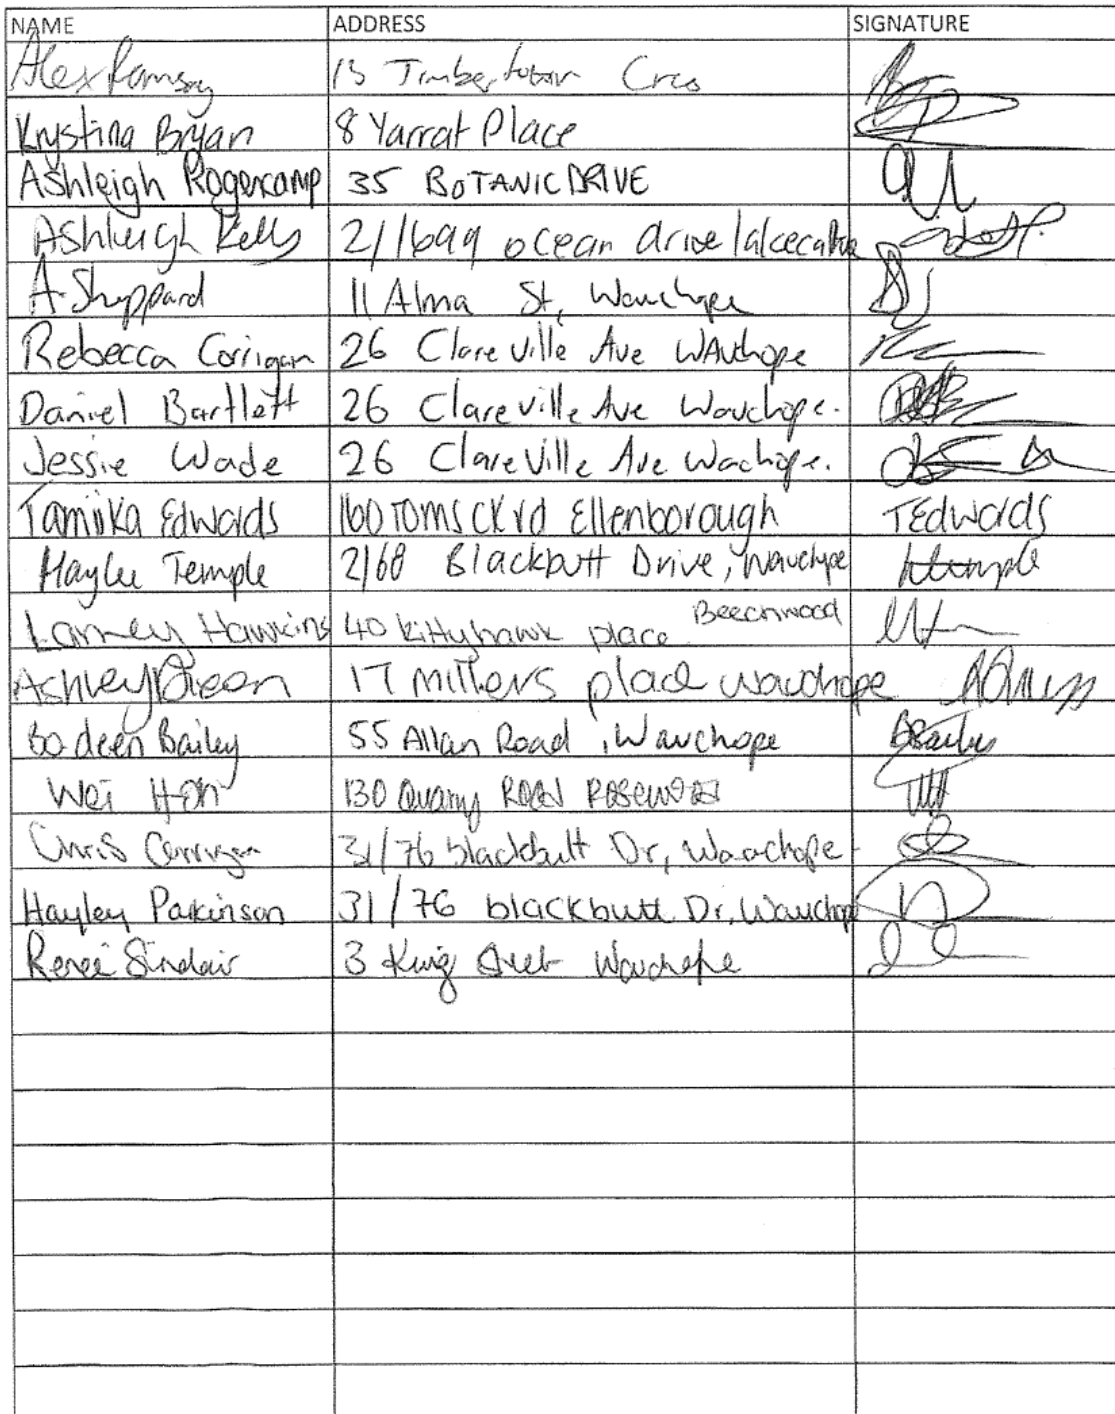 NAME ADDRESS SIGNATURE
Alex Ramsay 13 Timbertown Cres
Krystina Bryan 8 Yarrat Place
Ashleigh Rogencamp 35 BOTANIC DRIVE
Ashleigh Kelly 2/1699 ocean drive
A Sheppard 11 Alma St, Wauchope
Rebecca Corrigan 26 Clareville Ave WAuchope
Daniel Bartlett 26 Clareville Ave Wauchope.
Jessie Wade 26 Clareville Ave Wachope.
Tamika Edwards 160 Toms CK rd Ellenborough TEdwards
Haylee Temple 2/68 Blackbutt Drive, Wauchope
Hawkins 40 kittyhawk place Beechwood
Ashley 17 millers place wauchope
Bodeen Bailey 55 Allan Road, Wauchope BBailey
Wei Han 130 Quarry Road
Chris Corrigan 31/76 blackbutt Dr, Wauchope
Hayley Parkinson 31/76 blackbutt Dr, Wauchope
Reneé Sinclair 3 King Street Wauchope